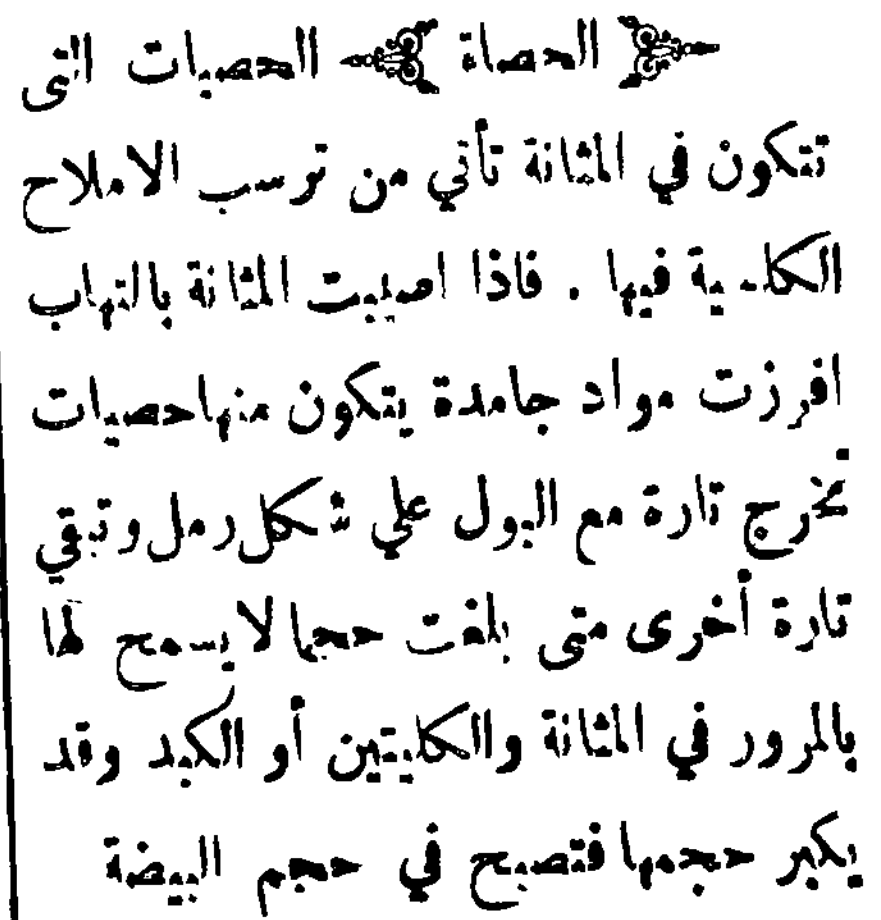 ﴿ الحصاة ﴾ الحصيات التي
تتكون في المثانة تأتي من ترسب الاملاح
الكلسية فيها . فاذا اصيبت المثانة بالتهاب
افرزت مواد جامدة يتكون منها حصيات
تخرج تارة مع البول علي شكل رمل و تبقي
تارة أخرى متى بلغت حجما لا يسمح لها
بالمرور في المثانة والكليتين أو الكبد وقد
يكبر حجمها فتصبح في حجم البيضة